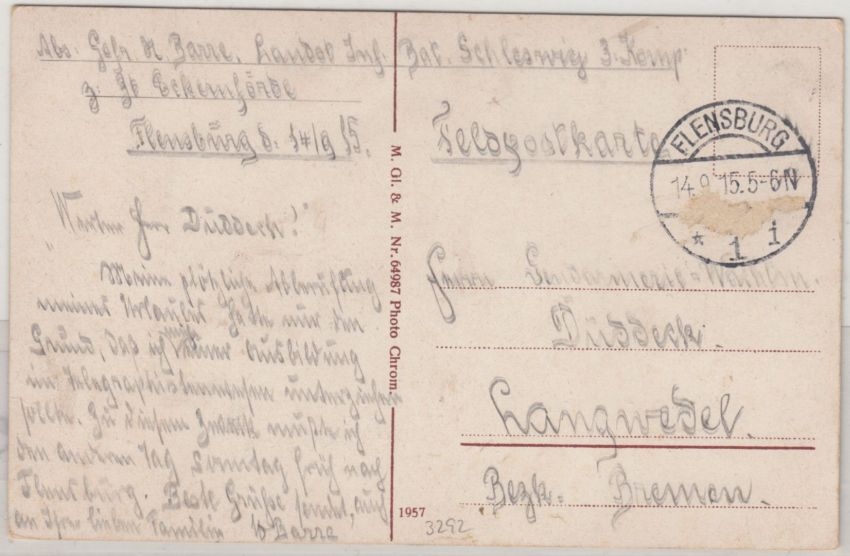 Abs. Gefr. H. Barre, Landst. Inf. Bat. Schleswig 3. Komp.
z. Zt Eckernförde
Flensburg d. 14/9 15.
Feldpostkarte
FLENSBURG
14.9.15.5-6N
* 1 i
"Werter Herr Düddeck!"
Meine plötzliche Abberufung
meines Urlaubes hatte nur den
Grund, das ich mich einer Ausbildung
im Telegraphistenwesen unterziehen
sollte. Zu diesem Zweck mußte ich
den anderen Tag Sonntag früh nach
Flensburg. Beste Grüße sendet, auch
an Ihre lieben Familie H Barre
M. Gl. & M. Nr. 64987 Photo Chrom.
Herrn Gendarmerie-Wachtm.
Düddeck.
Langwedel.
Bezk. Bremen.
1957
3292